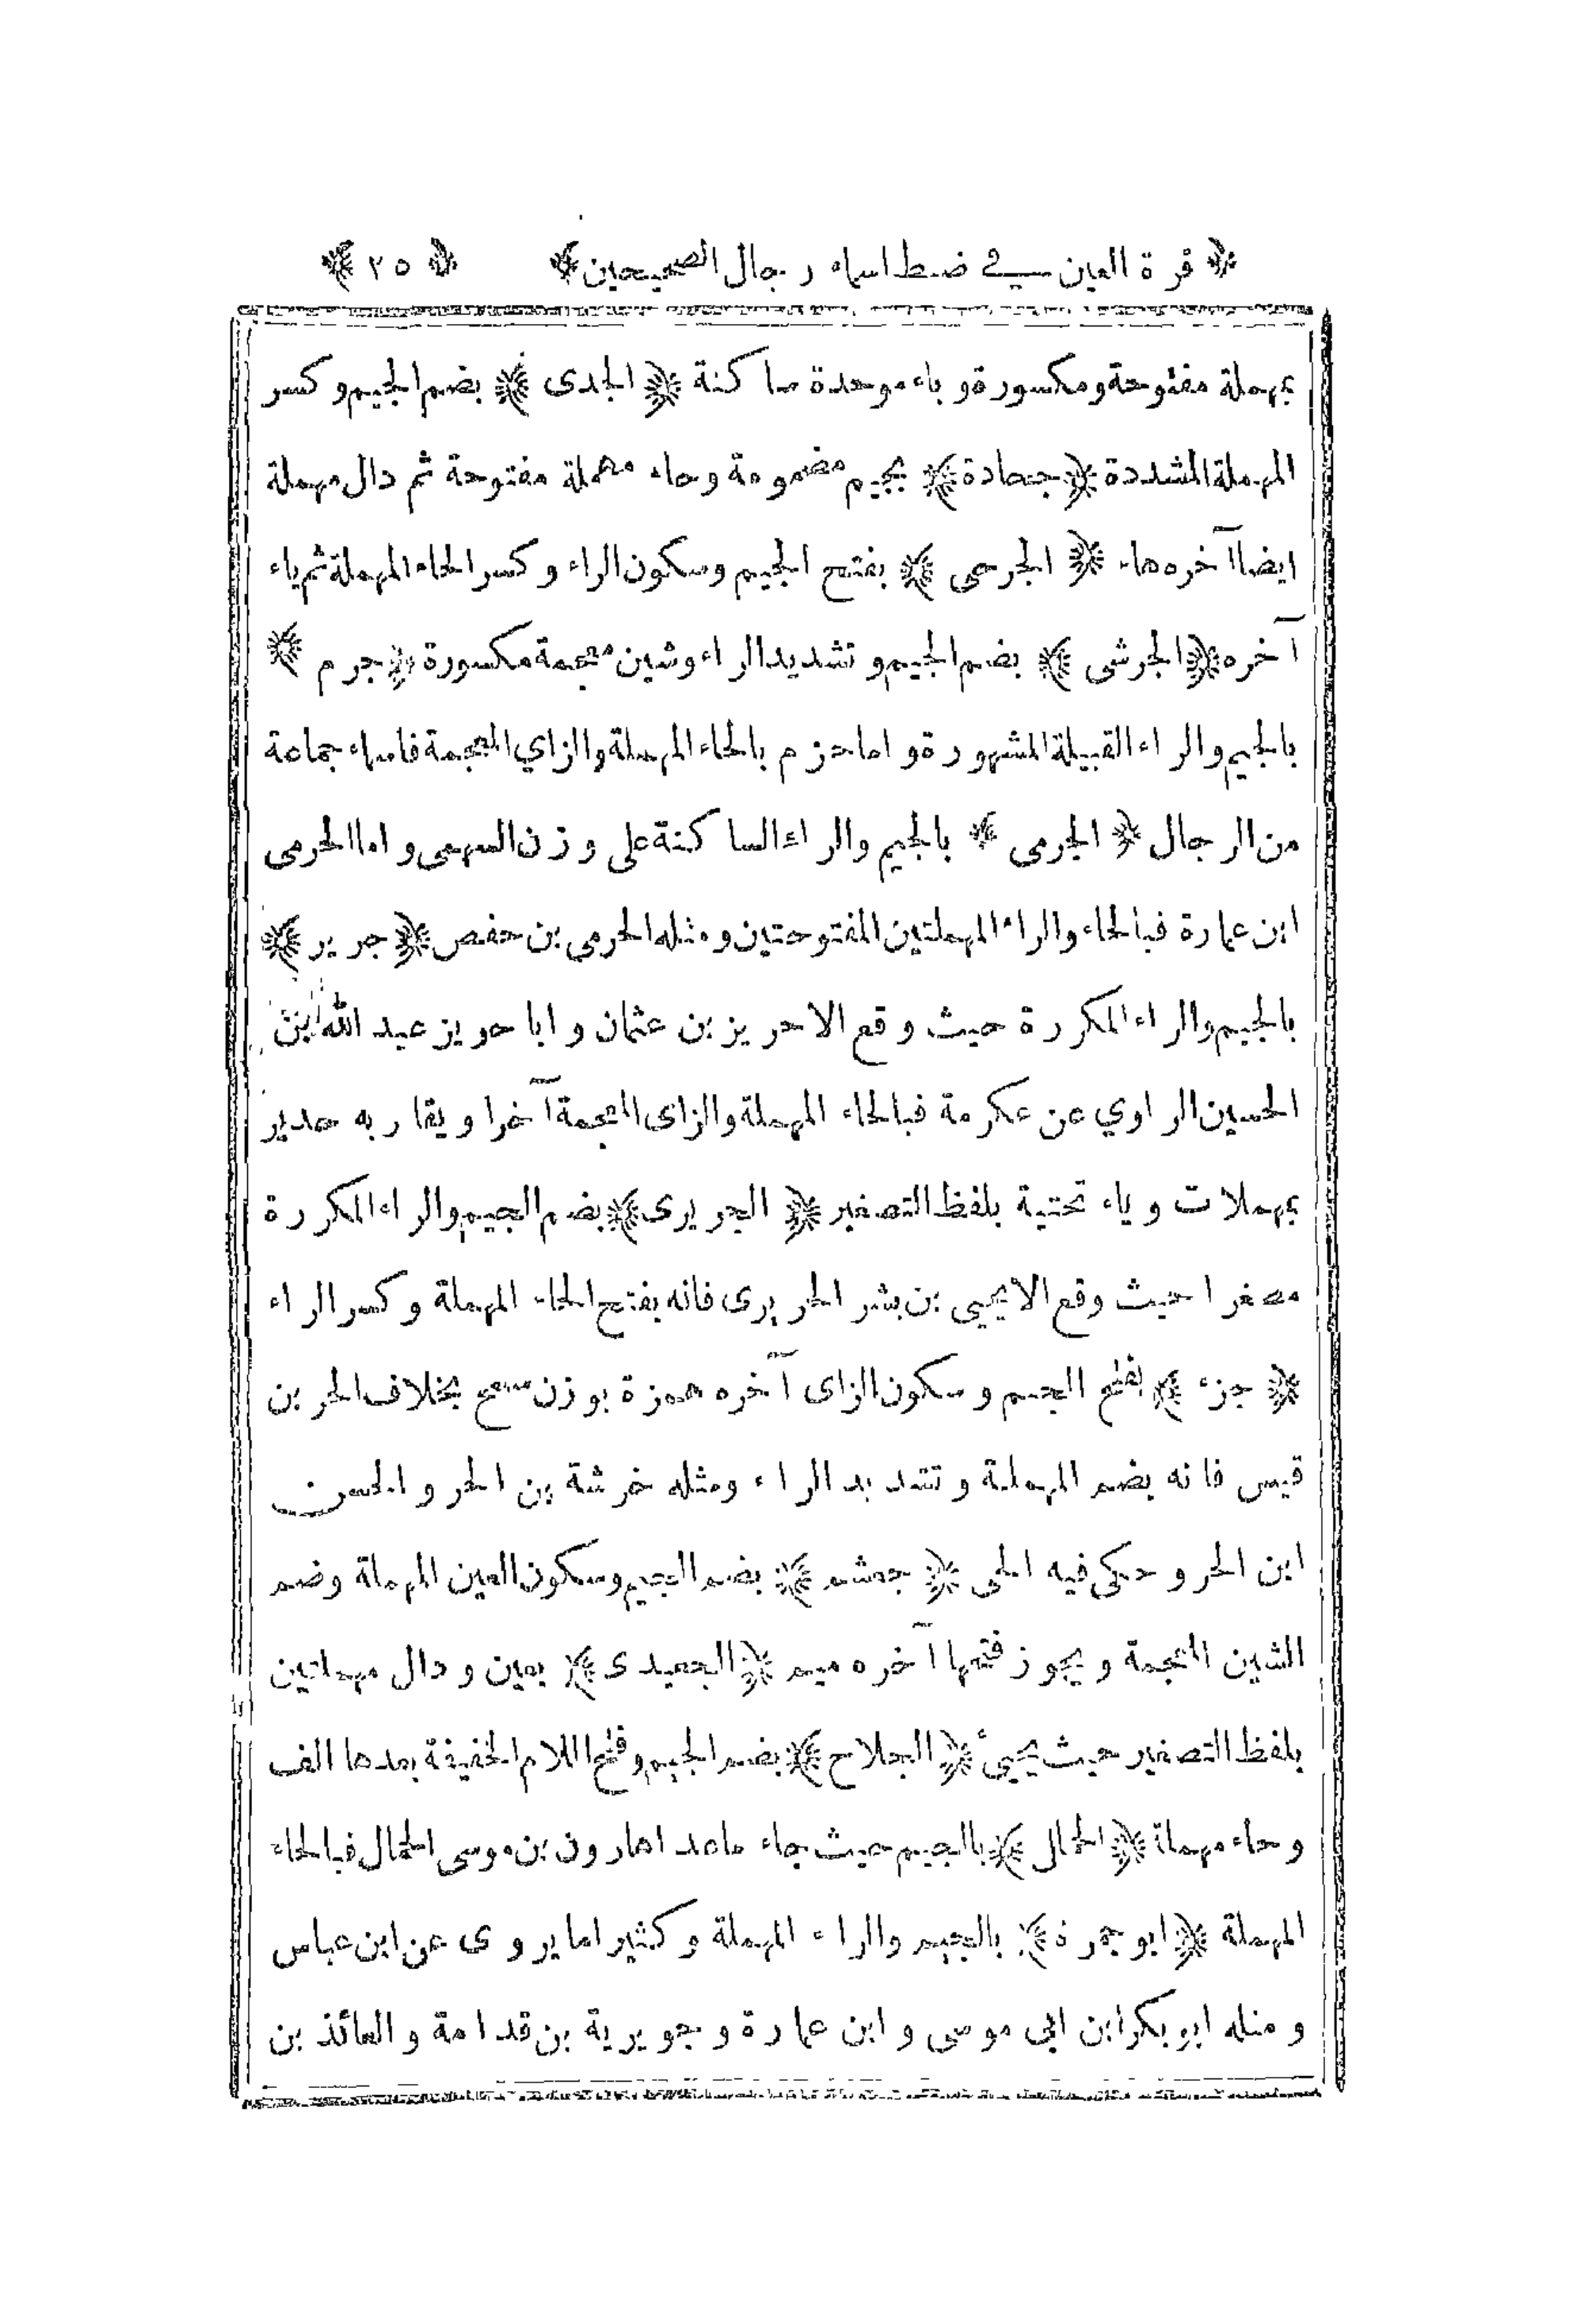 ﴿ قرة العين في ضبط اسماء رجال الصحيحين ﴾ ﴿ ٢٥ ﴾
بمهملة مفتوحة ومكسورة وباء موحدة ساكنة ﴿ الجدى ﴾ بضم الجيم وكسر
المهملة المشددة ﴿ جحادة ﴾ بجيم مضمومة وحاء مهملة مفتوحة ثم دال مهملة
ايضا آخره هاء ﴿ الجرحى ﴾ بفتح الجيم وسكون الراء وكسر الحاء المهملة ثم ياء
آخره ﴿ الجرشى ﴾ بضم الجيم وتشديد الراء وشين معجمة مكسورة ﴿ جرم ﴾
بالجيم والراء القبيلة المشهورة واما حزم بالحاء المهملة والزاي المعجمة فاسماء جماعة
من الرجال ﴿ الجرمى ﴾ بالجيم والراء الساكنة على وزن السهمى واما الحرمى
ابن عمارة فبالحاء والراء المهملتين المفتوحتين ومثله الحرمى بن حفص ﴿ جرير ﴾
بالجيم والراء المكررة حيث وقع الا حريز بن عثمان وابا حريز عبد الله بن
الحسين الراوي عن عكرمة فبالحاء المهملة والزاى المعجمة آخرا ويقاربه حدير
بمهملات وياء تحتية بلفظ التصغير ﴿ الجريرى ﴾ بضم الجيم والراء المكررة
مصغرا حيث وقع الا يحيى بن بشر الحريرى فانه بفتح الحاء المهملة وكسر الراء
﴿ جزء ﴾ بفتح الجيم وسكون الزاى آخره همزة بوزن سمح بخلاف الحر بن
قيس فانه بضم المهملة وتشديد الراء ومثله خرشة بن الحر والحسن
ابن الحر وحكى فيه الحى ﴿ جعشم ﴾ بضم الجيم وسكون العين المهملة وضم
الشين المعجمة ويجوز فتحها آخره ميم ﴿ الجعيدى ﴾ بعين ودال مهملتين
بلفظ التصغير حيث يحيئ ﴿ الجلاح ﴾ بضم الجيم وفتح اللام الخفيفة بعدها الف
وحاء مهملة ﴿ الجمال ﴾ بالجيم حيث جاء ماعدا هارون بن موسى الحمال فبالحاء
المهملة ﴿ ابو جمرة ﴾ بالجيم والراء المهملة وكثيرا ما يروى عن ابن عباس
ومثله ابو بكر ابن ابي موسى وابن عمارة وجويرية بن قدامة والعائذ بن